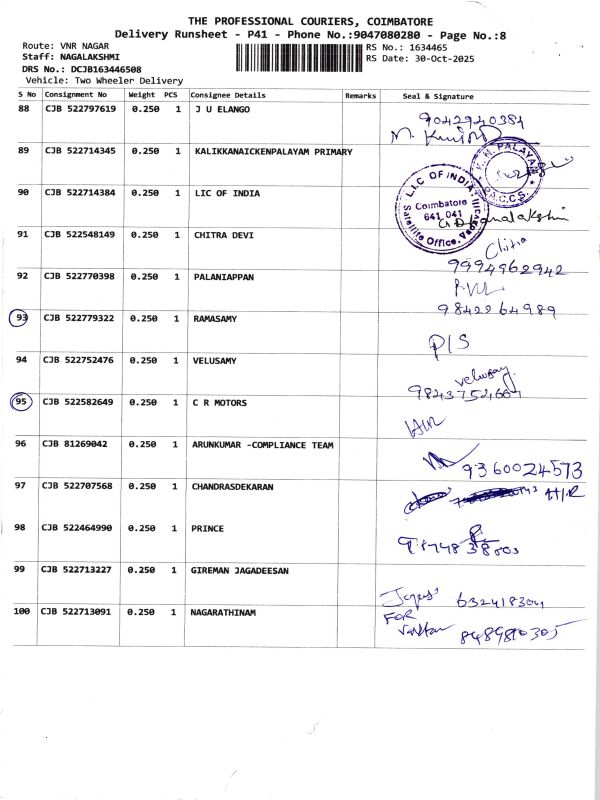 THE PROFESSIONAL COURIERS, COIMBATORE
Delivery Runsheet - P41 - Phone No.:9047080280 - Page No.:8
Route: VNR NAGAR
RS No.: 1634465
Staff: NAGALAKSHMI
RS Date: 30-Oct-2025
DRS No.: DCJB163446508
Vehicle: Two Wheeler Delivery
S No Consignment No Weight PCS Consignee Details Remarks Seal & Signature
88 CJB 522797619 0.250 1 J U ELANGO
9042940384
89 CJB 522714345 0.250 1 KALIKKANAICKENPALAYAM PRIMARY
K. N. PALAYAM P.A.C.C.S.
90 CJB 522714384 0.250 1 LIC OF INDIA
L.I.C OF INDIA
Coimbatore
641 041
Satellite Office,
91 CJB 522548149 0.250 1 CHITRA DEVI
Chitra
9994962942
92 CJB 522770398 0.250 1 PALANIAPPAN
9842264989
93 CJB 522779322 0.250 1 RAMASAMY
P/S
94 CJB 522752476 0.250 1 VELUSAMY
velusamy
95 CJB 522582649 0.250 1 C R MOTORS
96 CJB 81269042 0.250 1 ARUNKUMAR -COMPLIANCE TEAM
9360024573
97 CJB 522707568 0.250 1 CHANDRASDEKARAN
H/R
98 CJB 522464990 0.250 1 PRINCE
99 CJB 522713227 0.250 1 GIREMAN JAGADEESAN
100 CJB 522713091 0.250 1 NAGARATHINAM
FOR
8489810305